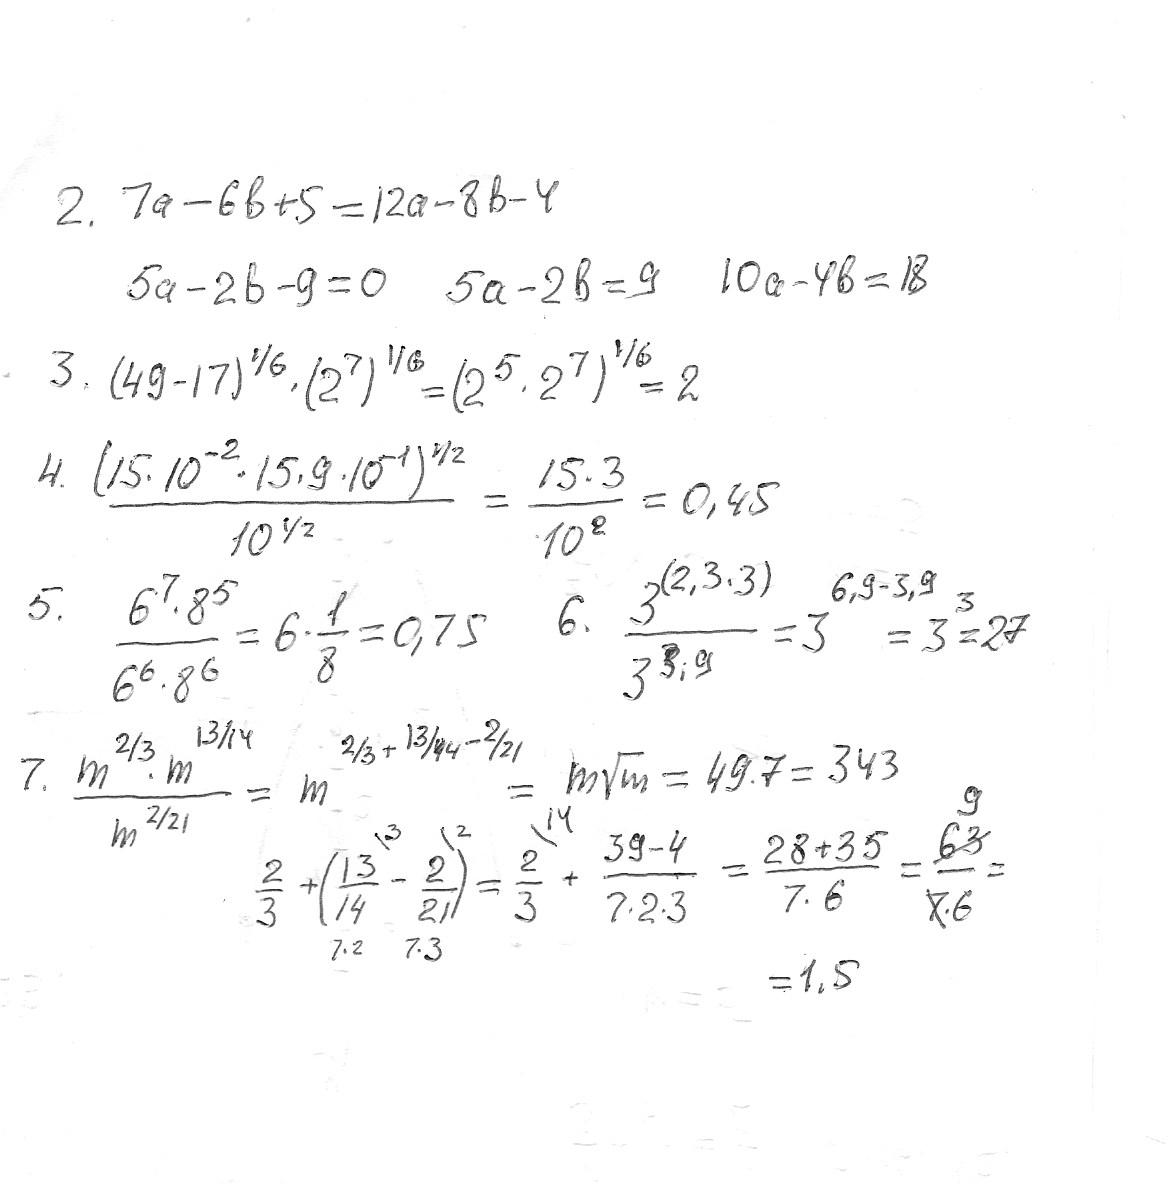 2. 7a-6b+5=12a-8b-4
5a-2b-9=0 5a-2b=9 10a-4b=18
3. (49-17)^1/6·(2^7)^1/6=(2^5·2^7)^1/6=2
4. (15·10^-2·15·9·10^-1)^1/2 / 10^1/2 = 15·3 / 10^2 = 0,45
5. 6^7·8^5 / 6^6·8^6 = 6·1/8=0,75 6. 3^(2,3·3) / 3^3,9 =3^6,9-3,9 =3^3=27
7. m^2/3·m^13/14 / m^2/21 = m^2/3+13/14-2/21 = m√m = 49·7=343
2/3+(13/14\3 - 2/21\2)=2/3\14 + 39-4 / 7·2·3 = 28+35 / 7·6 = 63 9 / 7·6 =
7·2 7·3
=1,5